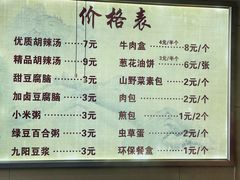 价格表
优质胡辣汤 7元
精品胡辣汤 9元
甜豆腐脑 3元
加卤豆腐脑 3元
小米粥 3元
绿豆百合粥 3元
九阳豆浆 3元
牛肉盒 4元/半个 8元/个
葱花油饼 3元/半张 6元/张
山野菜素包 2元/个
肉包 2元/个
煎包 1元/个
虫草蛋 2元/个
环保餐盒 1元/个